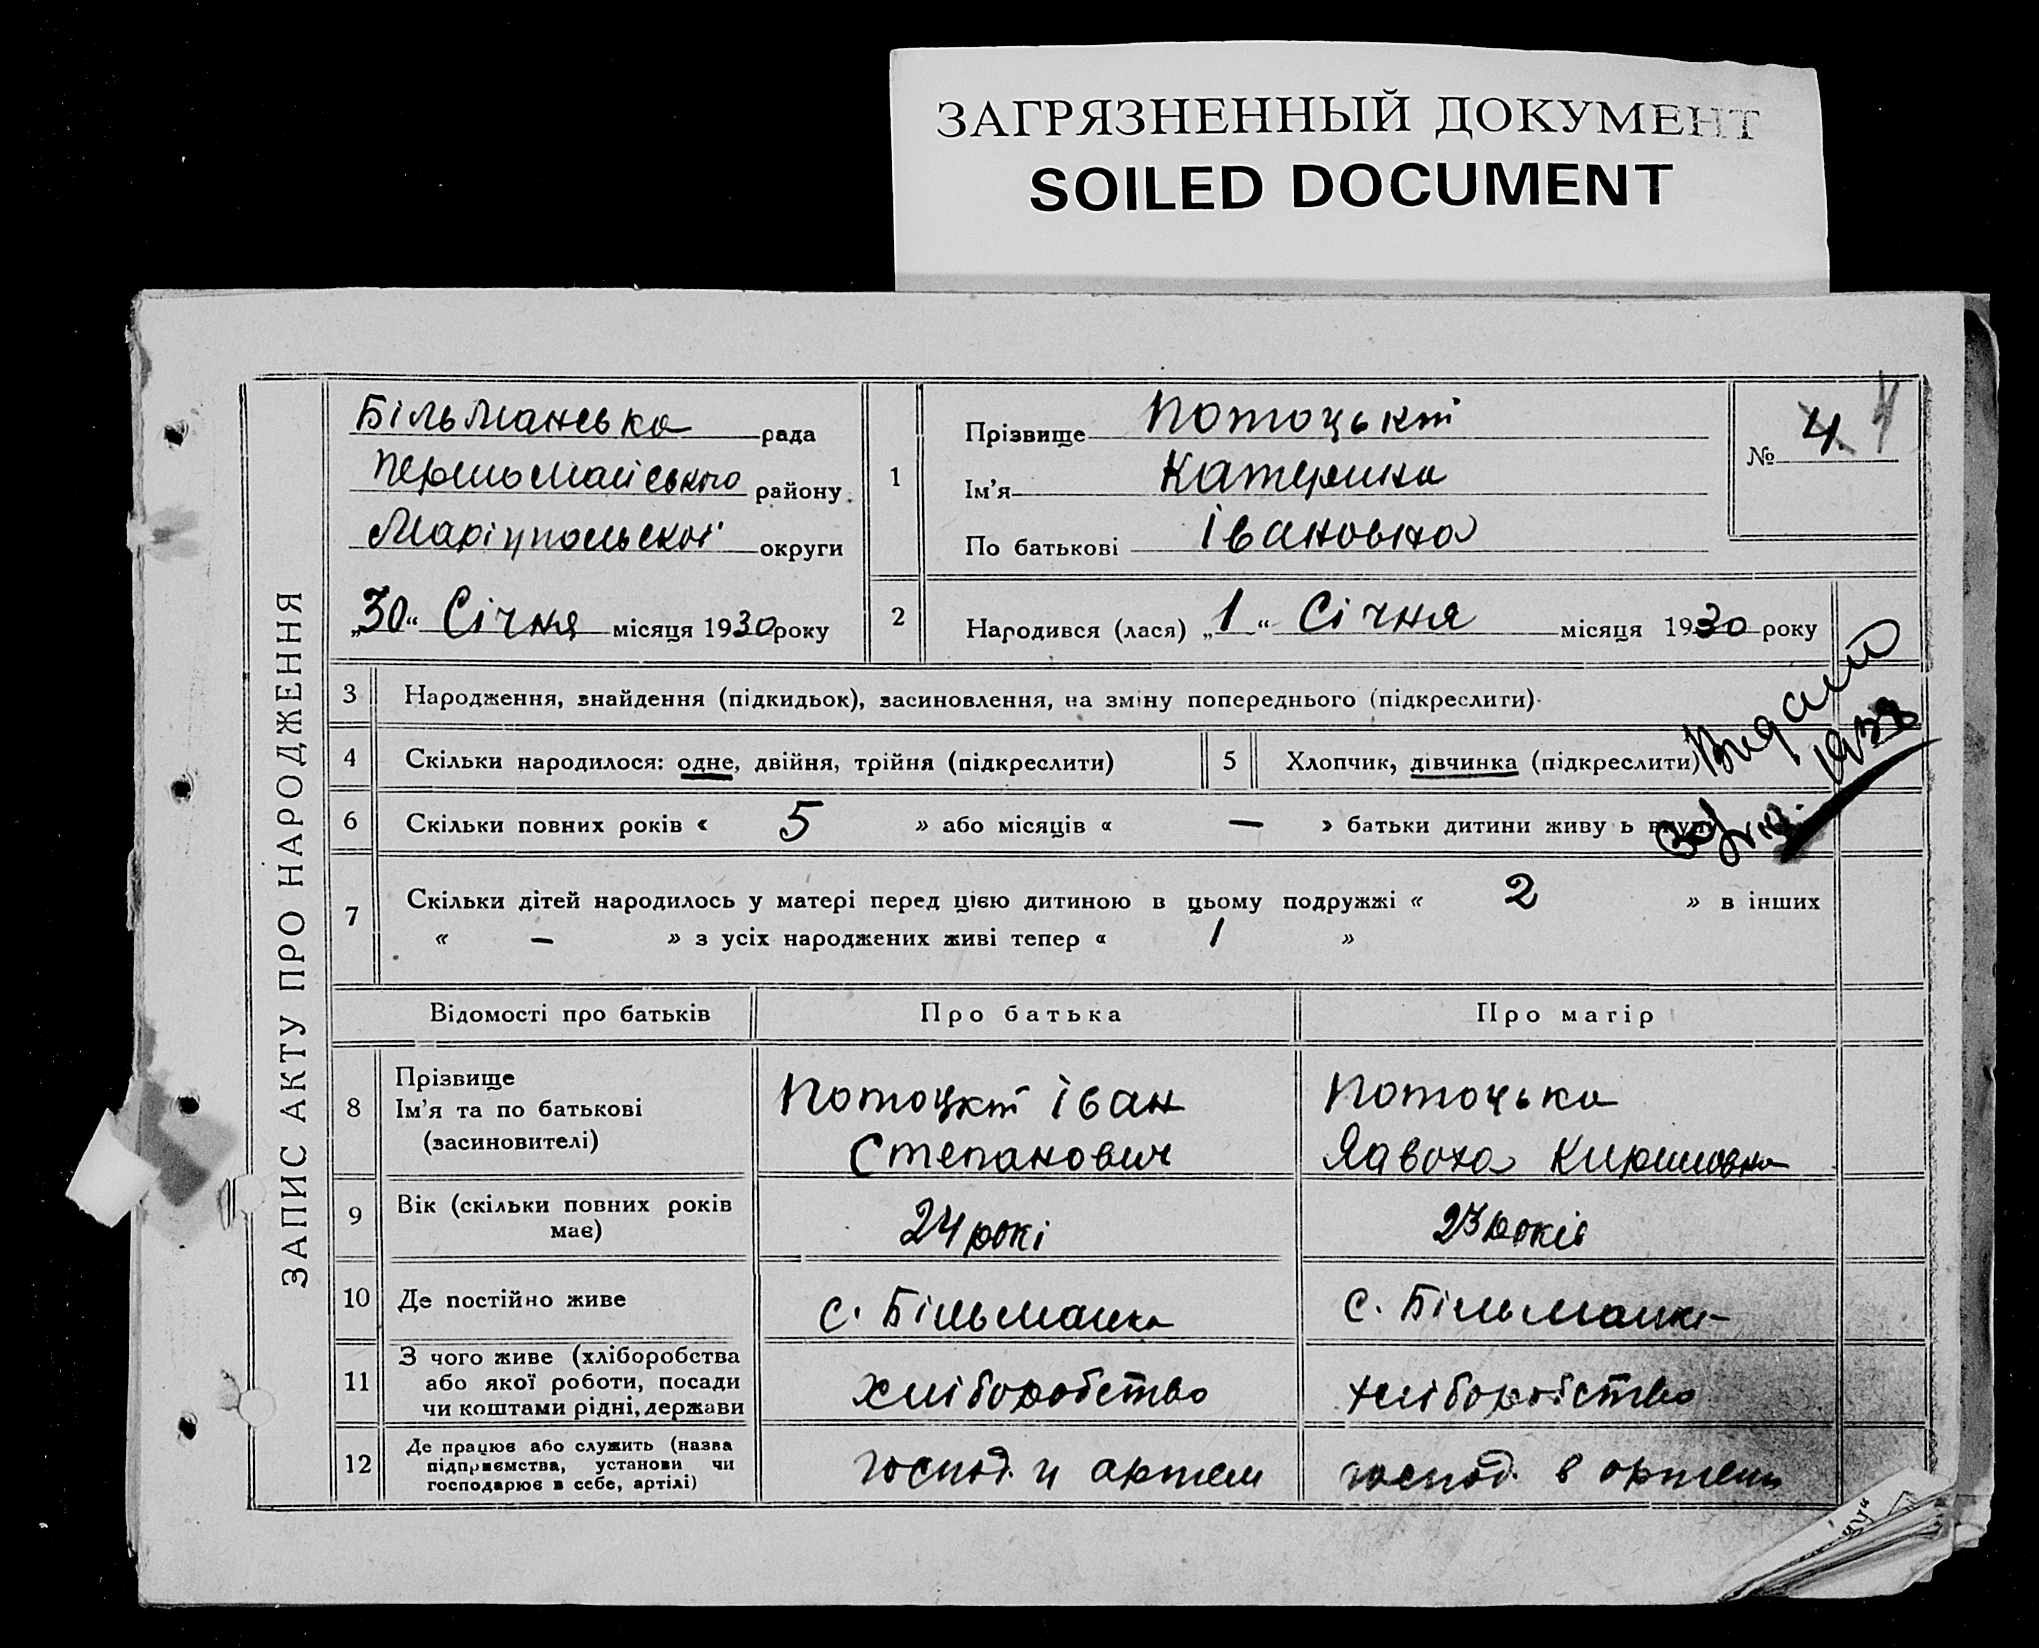 ЗАГРЯЗНЕННЫЙ ДОКУМЕНТ
SOILED DOCUMENT
ЗАПИС АКТУ ПРО НАРОДЖЕННЯ
Більманська рада
Першомайського району
Маріупольської округи
„30“ Січня місяця 1930 року
1 Прізвище Потоцькт
Ім'я Катерина
По батькові Івановна
№ 4. 4
2 Народився (лася) „1“ Січня місяця 1930 року
3 Народження, знайдення (підкидьок), засиновлення, на зміну попереднього (підкреслити).
4 Скільки народилося: одне, двійня, трійня (підкреслити)
5 Хлопчик, дівчинка (підкреслити)
Видано
193
6 Скільки повних років « 5 » або місяців « — » батьки дитини живу ь вкупі
7 Скільки дітей народилось у матері перед цією дитиною в цьому подружжі « 2 » в інших
« — » з усіх народжених живі тепер « 1 »
Відомості про батьків Про батька Про матір
8 Прізвище
Ім'я та по батькові
(засиновителі)
Потоцкт Іван
Степанович
Потоцька
Явдоха
9 Вік (скільки повних років
має)
24 рокі
23 років
10 Де постійно живе
с. Більманка
с. Більманка
11 З чого живе (хліборобства
або якої роботи, посади
чи коштами рідні, держави
хліборобство
хліборобство
12 Де працює або служить (назва
підприємства, установи чи
господарює в себе, артілі)
господ. у артели
господ. в артель